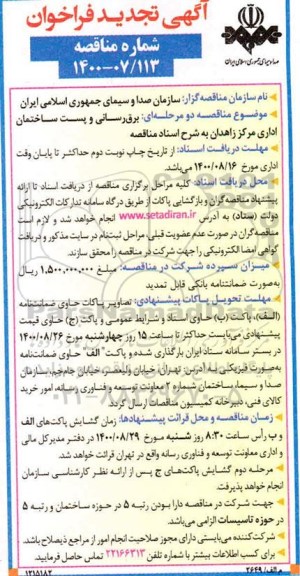 آگهی تجدید فراخوان
شماره مناقصه
۱۴۰۰-۰۷/۱۱۳
صدا و سیمای جمهوری اسلامی ایران
نام سازمان مناقصه‌گزار: سازمان صدا و سیمای جمهوری اسلامی ایران
موضوع مناقصه دو مرحله‌ای: برق‌رسانی و پست ساختمان
اداری مرکز زاهدان به شرح اسناد مناقصه
مهلت دریافت اسناد: از تاریخ چاپ نوبت دوم حداکثر تا پایان وقت
اداری مورخ ۱۴۰۰/۰۸/۱۶ می‌باشد.
محل دریافت اسناد: کلیه مراحل برگزاری مناقصه از دریافت اسناد تا ارائه
پیشنهاد مناقصه‌گران و بازگشایی پاکات از طریق درگاه سامانه تدارکات الکترونیکی
دولت (ستاد) به آدرس www.setadiran.ir انجام خواهد شد و لازم است
مناقصه‌گران در صورت عدم عضویت قبلی، مراحل ثبت‌نام در سایت مذکور و دریافت
گواهی امضا الکترونیکی را جهت شرکت در مناقصه را محقق سازند.
میزان سپرده شرکت در مناقصه: مبلغ ۱,۵۰۰,۰۰۰,۰۰۰ ریال
به‌صورت ضمانتنامه بانکی قابل تمدید
مهلت تحویل پاکات پیشنهادی: تصاویر پاکات حاوی ضمانتنامه
(الف)، پاکت (ب) حاوی اسناد و شرایط عمومی و پاکت (ج) حاوی قیمت
پیشنهادی می‌بایست حداکثر تا ساعت ۱۵ روز چهارشنبه مورخ ۱۴۰۰/۰۸/۲۶
در بستر سامانه ستاد ایران بارگذاری شده و پاکت "الف" حاوی ضمانت‌نامه
به‌صورت فیزیکی به آدرس: تهران، خیابان ولیعصر، خیابان جام‌جم، سازمان
صدا و سیما، ساختمان شماره ۲ معاونت توسعه و فناوری رسانه، امور خرید
کالای فنی، دبیرخانه کمیسیون مناقصات ارسال گردد.
زمان مناقصه و محل قرائت پیشنهادها: زمان گشایش پاکت‌های الف
و ب رأس ساعت ۸:۳۰ روز شنبه مورخ ۱۴۰۰/۰۸/۲۹ در دفتر مدیرکل مالی
و اداری معاونت توسعه و فناوری رسانه واقع در تهران قرائت خواهد شد.
مرحله دوم گشایش پاکت‌های ج پس از ارائه نظر کارشناسی سازمان
انجام خواهد پذیرفت.
جهت شرکت در مناقصه دارا بودن رتبه ۵ در حوزه ساختمان و رتبه ۵
در حوزه تاسیسات الزامی می‌باشد.
شرکت‌کننده می‌بایستی دارای مجوز صلاحیت انجام امور از مراجع ذیصلاح باشد.
برای کسب اطلاعات بیشتر با شماره تلفن ۲۲۱۶۶۳۱۳ تماس حاصل فرمایید.
م الف/ ۲۶۴۹
۱۲۱۵۱۸۲